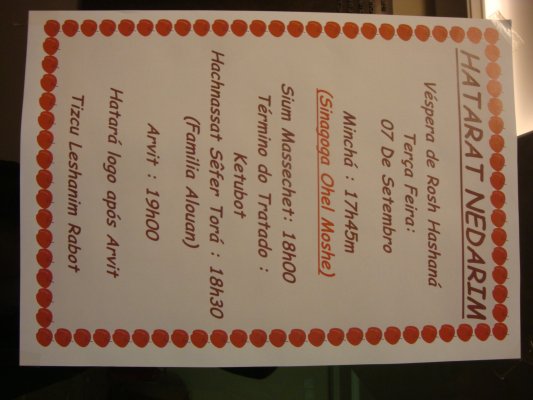 HATARAT NEDARIM
Véspera de Rosh Hashaná
Terça Feira:
07 De Setembro
Minchá : 17h45m
(Sinagoga Ohel Moshe)
Sium Massechet: 18h00
Término do Tratado :
Ketubot
Hachnassat Séfer Torá : 18h30
(Familia Alouan)
Arvit : 19h00
Hatará logo após Arvit
Tizcu Leshanim Rabot